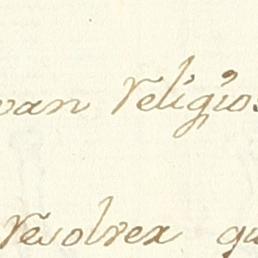 van religios
resolver qu